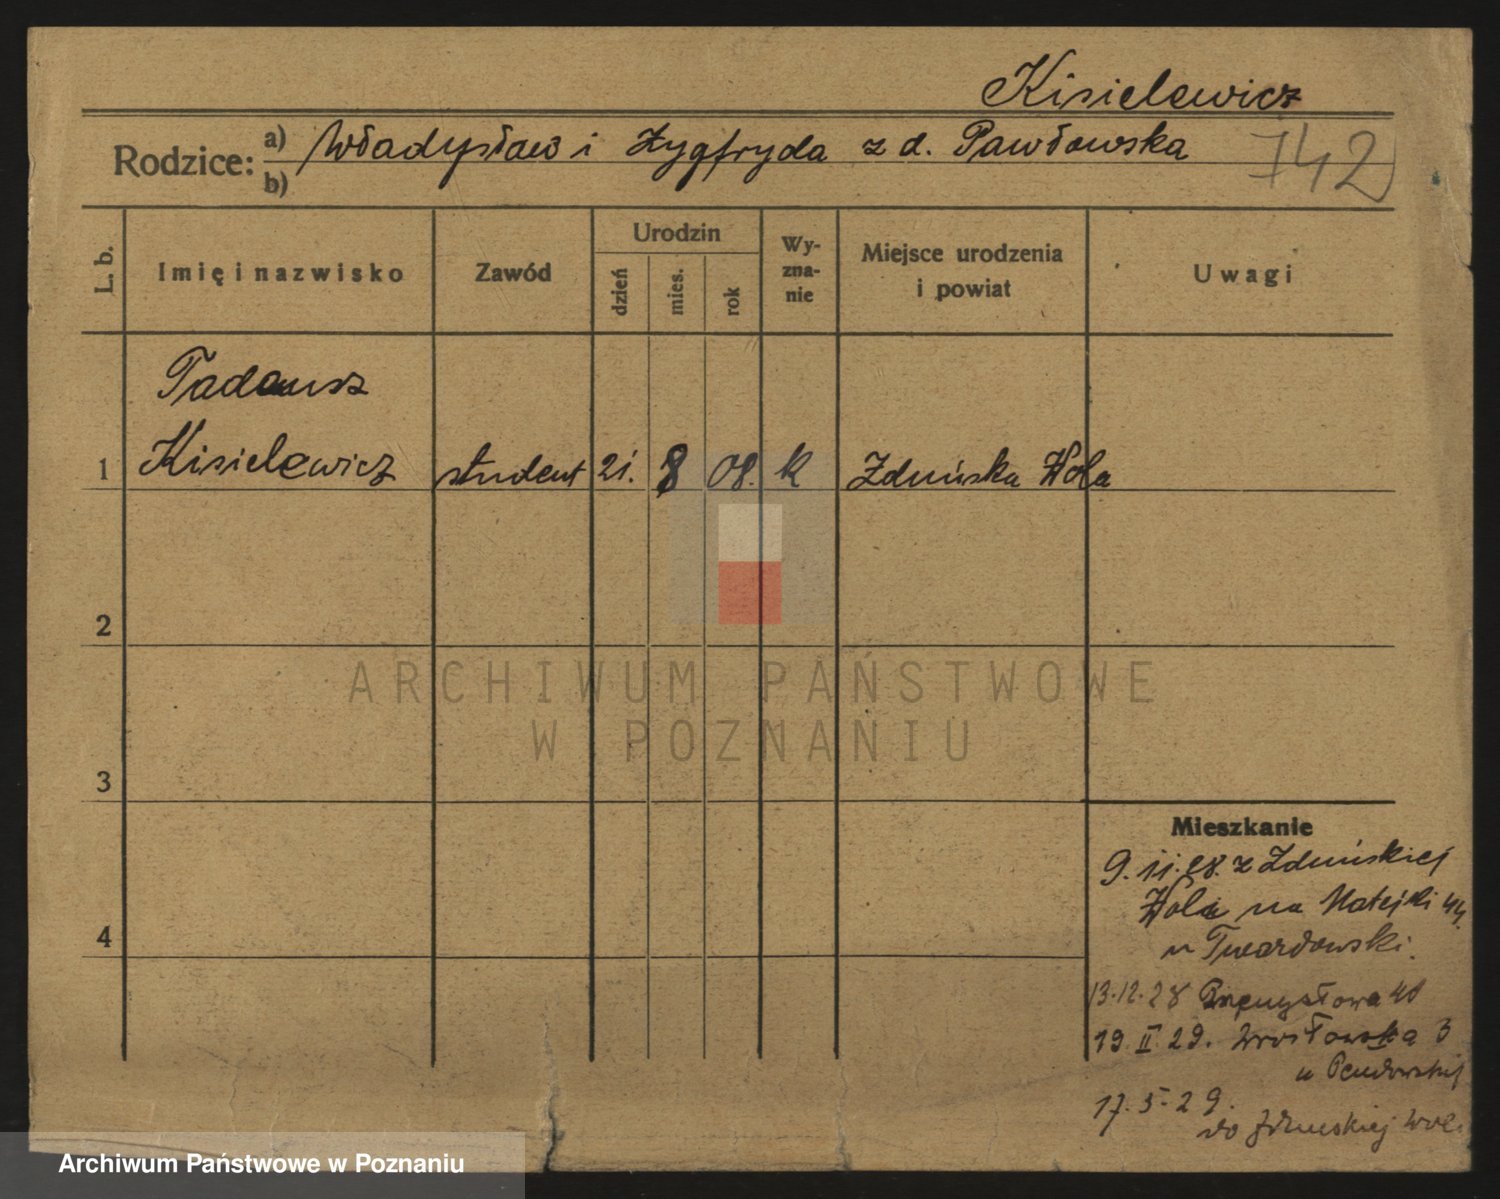 Kisielewicz
Rodzice: a) Władysław i Zygfryda z d. Pawłowska
b)
742
L. b.
Imię i nazwisko
Zawód
Urodzin
dzień
mies.
rok
Wy-
zna-
nie
Miejsce urodzenia
i powiat
Uwagi
Tadeusz
1 Kisielewicz student 21. 8 08. k Zduńska Wola
2
ARCHIWUM PAŃSTWOWE
W POZNANIU
3
Mieszkanie
9.11.28. z Zduńskiej
Wola na Matejki 44
u Twardowski.
4
13.12.28 Przemysłowa
19. II. 29. 3
u
17.5.29.
do Zduńskiej Wol.
Archiwum Państwowe w Poznaniu